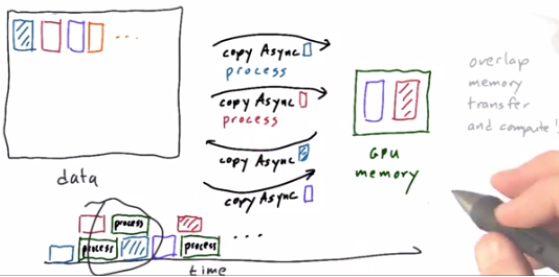 data
copy Async
process
copy Async
process
copy Async
copy Async
GPU
memory
overlap
memory
transfer
and compute!
process
process
process
time